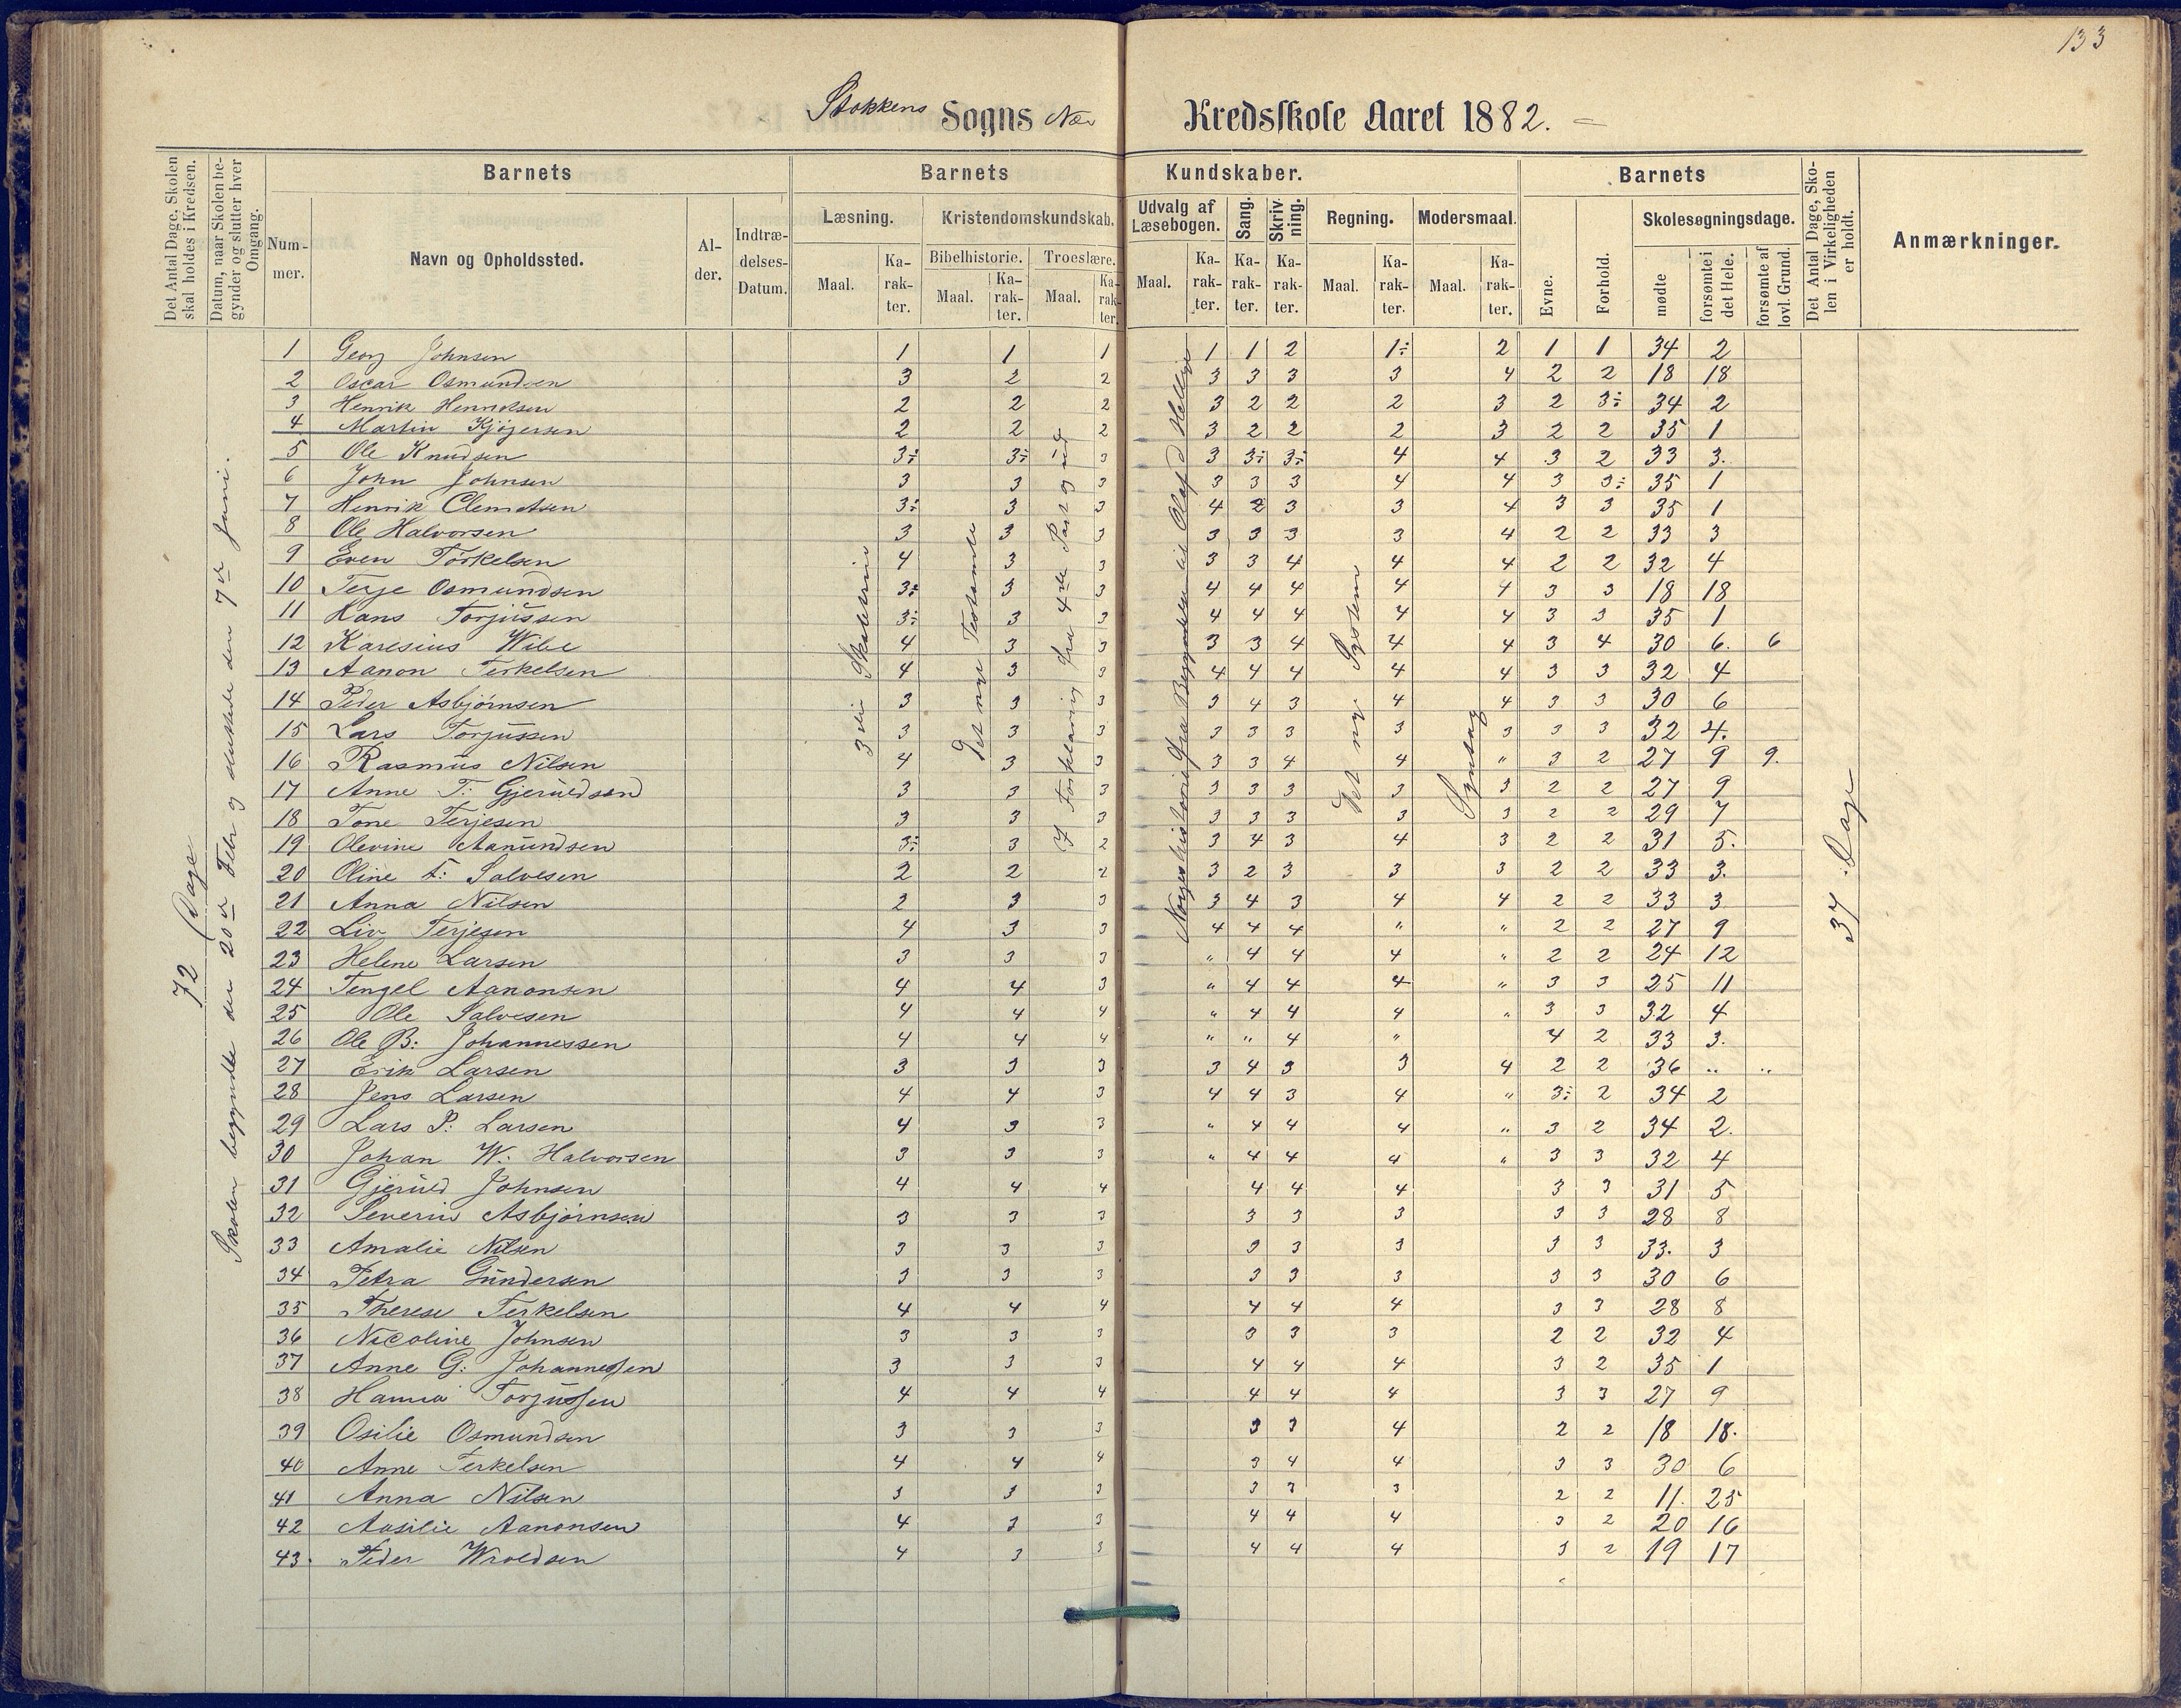 133
Stokkens Sogns Næs Kredsskole Aaret 1882.
Det Antal Dage, Skolen skal holdes i Kredsen.
Datum, naar Skolen begynder og slutter hver Omgang.
Barnets
Nummer.
Navn og Opholdssted.
Alder.
Indtrædelses-Datum.
Barnets Kundskaber.
Læsning.
Maal.
Karakter.
Kristendomskundskab.
Bibelhistorie.
Maal.
Karakter.
Troeslære.
Maal.
Karakter.
Udvalg af Læsebogen.
Maal.
Karakter.
Sang.
Karakter.
Skrivning.
Karakter.
Regning.
Maal.
Karakter.
Modersmaal.
Maal.
Karakter.
Barnets
Evne.
Forhold.
Skolesøgningsdage.
mødte
forsømte i det Hele.
forsømte af lovl. Grund.
Det Antal Dage, Skolen i Virkeligheden er holdt.
Anmærkninger.
72 Dage
Skolen begyndte den 20de Febr og sluttede den 7de Juni.
3die Skoletrin
Det nye Testamente
I Forklaring fra 4de Part og ud
Norgeshistorie fra Begyndelsen til Olaf d Hellige
Det nye System
Syntax
37 Dage
1 Georg Johnsen 1 1 1 1 1 2 1÷ 2 1 1 34 2
2 Oscar Osmundsen 3 2 2 3 3 3 3 4 2 2 18 18
3 Henrik Henriksen 2 2 2 3 2 2 2 3 2 3÷ 34 2
4 Martin Kjögersen 2 2 2 3 2 2 2 3 2 2 35 1
5 Ole Knudsen 3÷ 3÷ 3 3 3÷ 3÷ 4 4 3 2 33 3.
6 John Johnsen 3 3 3 3 3 3 4 4 3 3÷ 35 1
7 Henrik Clemetsen 3÷ 3 3 4 2 3 3 4 3 3 35 1
8 Ole Halvorsen 3 3 3 3 3 3 3 4 2 2 33 3
9 Even Torkelsen 4 3 3 3 3 4 4 4 2 2 32 4
10 Terje Osmundsen 3÷ 3 3 4 4 4 4 4 3 3 18 18
11 Hans Torjussen 3÷ 3 3 4 4 4 4 4 3 3 35 1
12 Karesius Wibe 4 3 3 3 3 4 4 4 3 4 30 6. 6
13 Aanon Terkelsen 4 3 3 4 4 4 4 4 3 3 32 4
14 Peder Asbjørnsen 3 3 3 3 4 3 4 4 3 3 30 6
15 Lars Torjussen 3 3 3 3 3 3 3 3 3 3 32 4.
16 Rasmus Nilsen 4 3 3 3 3 4 4 " 3 2 27 9 9.
17 Anne T: Gjeruldsen 3 3 3 3 3 3 3 3 2 2 27 9
18 Tone Terjesen 3 3 3 3 3 3 3 3 2 2 29 7
19 Olevine Aanundsen 3÷ 3 2 3 4 3 4 3 2 2 31 5.
20 Oline T: Salvesen 2 2 2 3 2 3 3 3 2 2 33 3.
21 Anna Nilsen 2 3 3 3 4 3 4 4 2 2 33 3
22 Liv Terjesen 4 3 3 4 4 4 " " 2 2 27 9
23 Helene Larsen 3 3 3 " 4 4 4 " 2 2 24 12
24 Tengel Aanonsen 4 4 3 " 4 4 4 " 3 3 25 11
25 Ole Salvesen 4 4 4 " 4 4 4 " 3 3 32 4
26 Ole B: Johannessen 4 4 4 " " 4 " 4 2 33 3.
27 Erik Larsen 3 3 3 3 4 3 3 4 2 2 36 " "
28 Jens Larsen 4 4 3 4 4 3 4 " 3÷ 2 34 2
29 Lars P: Larsen 4 3 3 " 4 4 4 " 3 2 34 2.
30 Johan W. Halvorsen 3 3 3 " 4 4 4 " 3 3 32 4
31 Gjeruld Johnsen 4 4 4 4 4 4 3 3 31 5
32 Severin Asbjørnsen 3 3 3 3 3 3 3 3 28 8
33 Amalie Nilsen 3 3 3 3 3 3 3 3 33. 3
34 Petra Gundersen 3 3 3 3 3 3 3 3 30 6
35 Therese Terkelsen 4 4 4 4 4 4 3 3 28 8
36 Nicoline Johnsen 3 3 3 3 3 3 2 2 32 4
37 Anne G: Johannessen 3 3 3 4 4 4 3 2 35 1
38 Hanna Torjussen 4 4 4 4 4 4 3 3 27 9
39 Osilie Osmundsen 3 3 3 3 3 4 2 2 18 18.
40 Anne Terkelsen 4 4 4 3 4 4 3 3 30 6
41 Anna Nilsen 3 3 3 3 3 3 2 2 11. 25
42 Aasilie Aanonsen 4 3 3 4 4 4 3 2 20 16
43. Peder Wroldsen 4 3 3 4 4 4 3 2 19 17